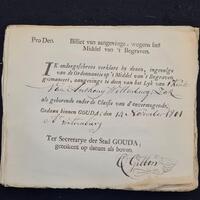 Pro Deo.
Billiet van aangevinge, wegens het
Middel van 't Begraven.
IK ondergeschreve verklare te dezen, ingevolge
van de Ordonnantie op 't Middel van 't Begraven
geëmaneert, aangevinge te doen van het Lyk van 't Kind
Van Anthony
als gehorende onder de Classis van d'onvermogende,
Gedaan binnen GOUDA, den 14 November 1801
Ter Secretarye der Stad GOUDA;
getekent op datum als boven.